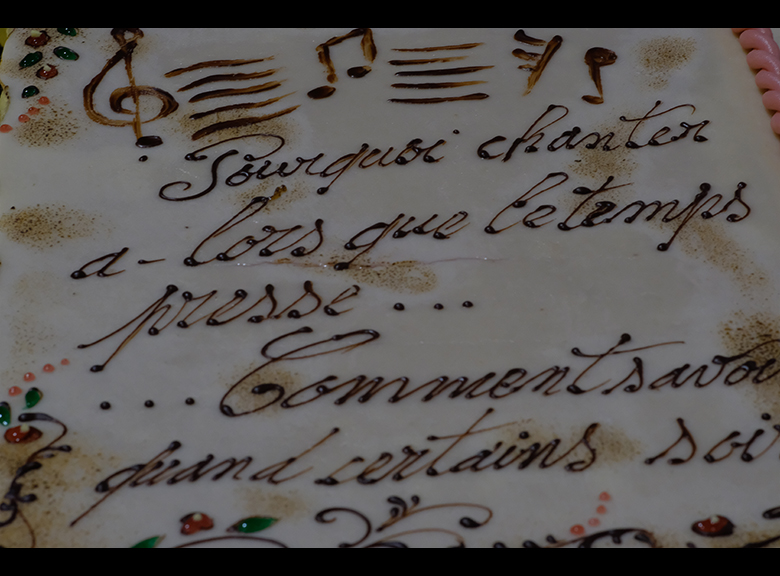 Pourquoi chanter
a-lors que le temps
presse ...
... Comment savoi
quand certains soi